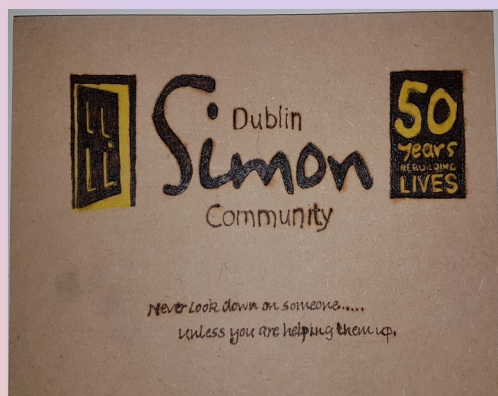 Dublin
Simon
Community
50
years
REBUILDING
LIVES
Never Look down on someone.....
unless you are helping them up.